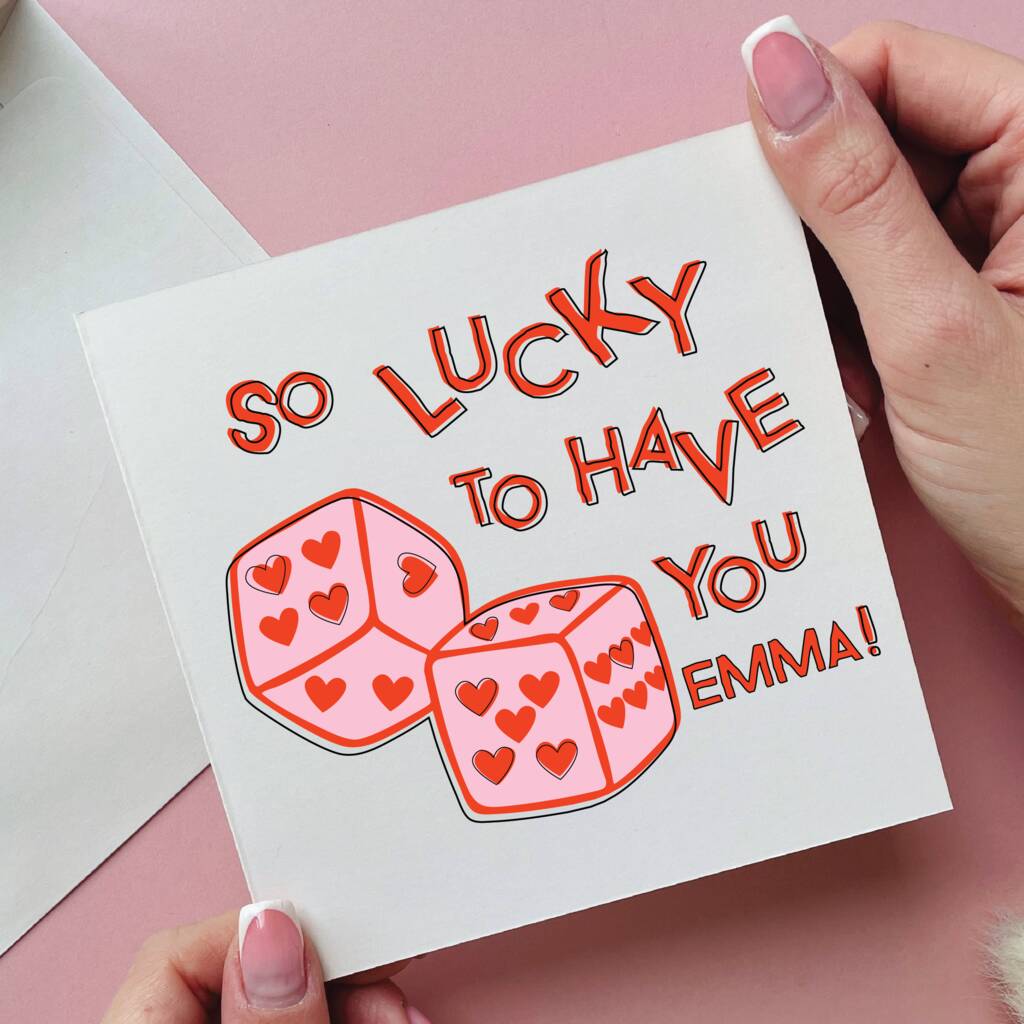 SO LUCKY
TO HAVE
YOU
EMMA!